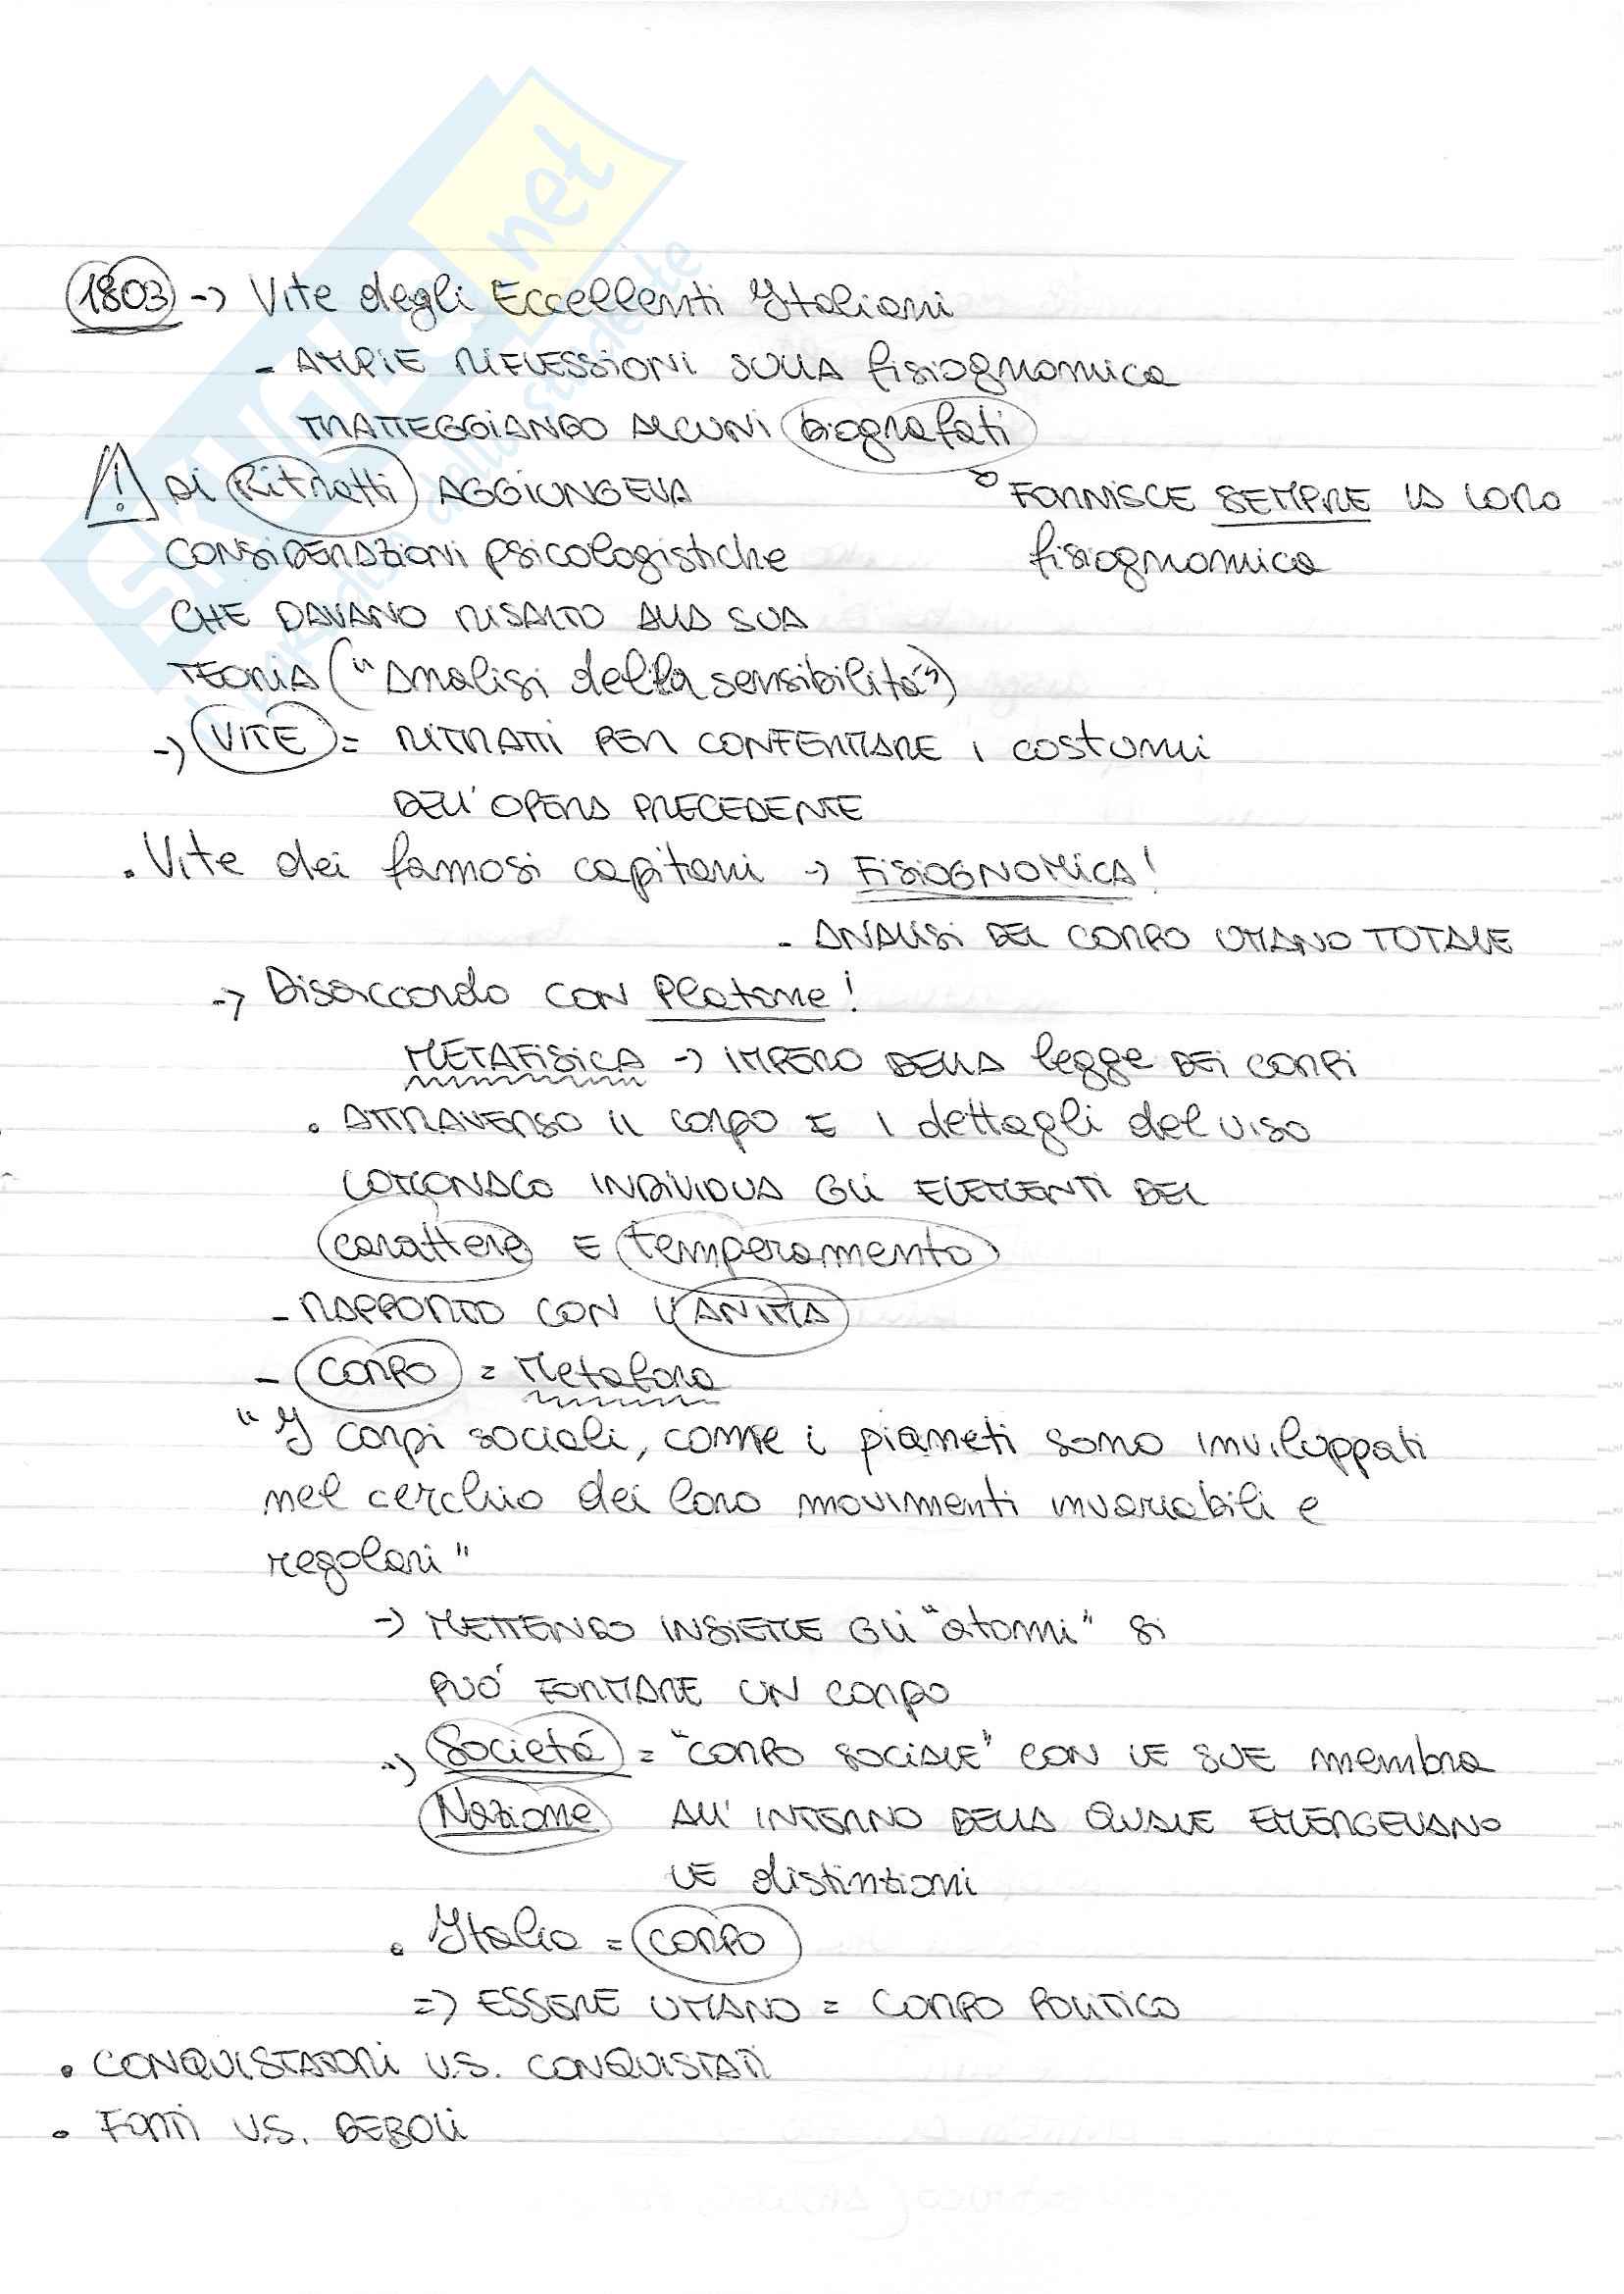 1803 -> Vite degli Eccellenti Italiani
- AMPIE RIFLESSIONI SULLA fisiognomica
TRATTEGGIANDO ALCUNI biografati
! Ai Ritratti AGGIUNGEVA
CONSIDERAZIONI psicologistiche
CHE DAVANO RISALTO ALLA SUA
TEORIA ("Analisi della sensibilità")
FORNISCE SEMPRE LA LORO
fisiognomica
-> VITE = RITRATTI PER CONFERMARE i costumi
DELL'OPERA PRECEDENTE
• Vite dei famosi capitani -> FISIOGNOMICA!
- ANALISI DEL CORPO UMANO TOTALE
-> Disaccordo CON Platone!
METAFISICA -> IMPERO DELLA legge DEI CORPI
• ATTRAVERSO IL corpo E I dettagli del viso
LOMONACO INDIVIDUA GLI ELEMENTI DEL
carattere E temperamento
- RAPPORTO CON L'ANIMA
- CORPO = Metafora
"I corpi sociali, come i pianeti sono inviluppati
nel cerchio dei loro movimenti invariabili e
regolari"
-> METTENDO INSIEME GLI "atomi" si
PUÓ FORMARE UN corpo
-> Societá = "CORPO SOCIALE" CON LE SUE membra
Nazione ALL'INTERNO DELLA QUALE EMERGEVANO
LE distinzioni
• Italia = CORPO
=> ESSERE UMANO = CORPO POLITICO
• CONQUISTATORI V.S. CONQUISTATI
• FORTI V.S. DEBOLI
SKUOLA.net